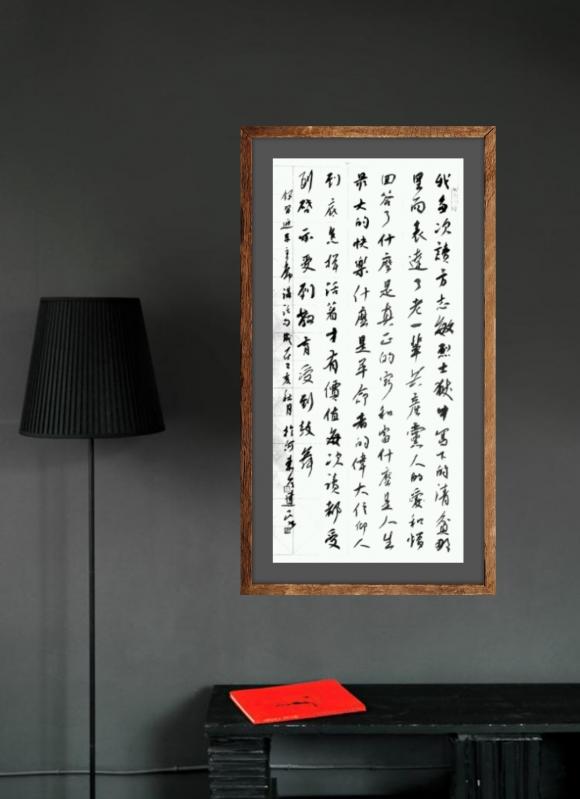 我多次讀方志敏烈士獄中写下的清貧那
里面表達了老一輩共産黨人的愛和憎
回答了什麼是真正的穷和富什麼是人生
最大的快樂什麼是革命者的偉大信仰人
到底怎樣活着才有價值每次讀都受
到啓示受到教育受到鼓舞
錄習近平主席講話句歲在己亥秋月於河東